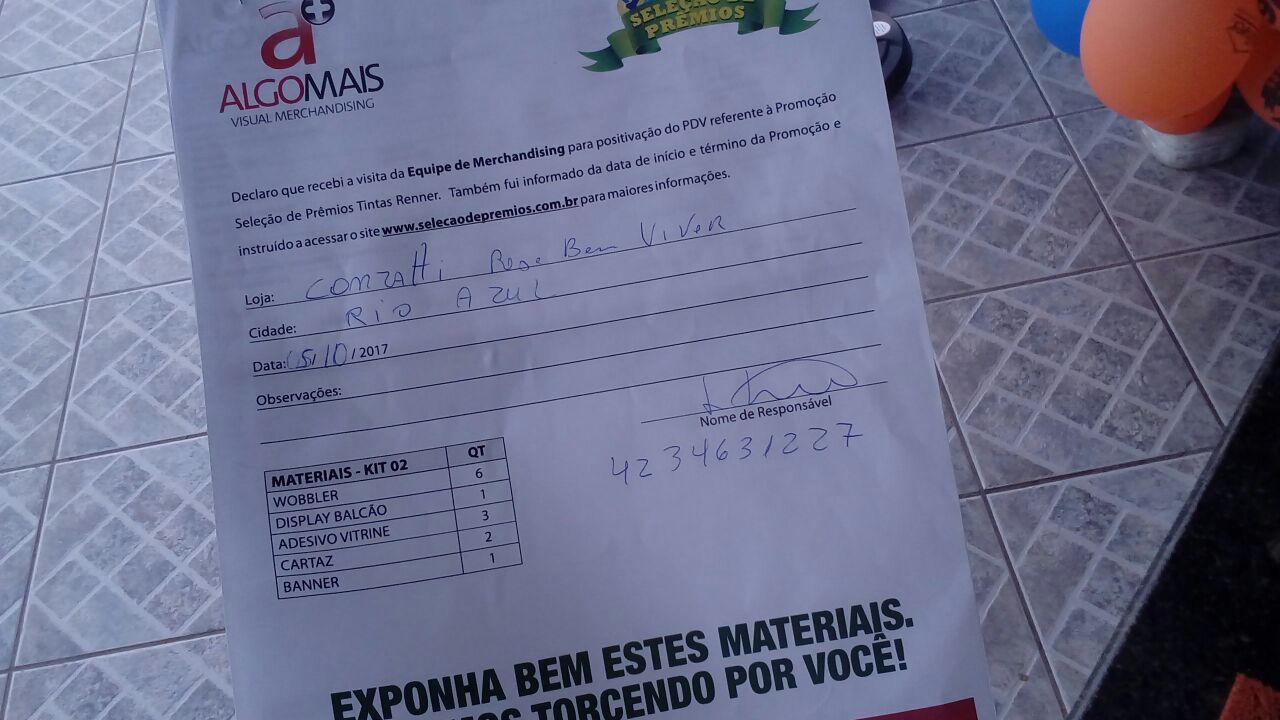 a+
ALGOMAIS
VISUAL MERCHANDISING
SELEÇÃO DE
PRÊMIOS
Declaro que recebi a visita da Equipe de Merchandising para positivação do PDV referente à Promoção
Seleção de Prêmios Tintas Renner. Também fui informado da data de início e término da Promoção e
instruído a acessar o site www.selecaodepremios.com.br para maiores informações.
Loja: Comzatti Rede Bem Viver
Cidade: Rio Azul
Data: 05/10/2017
Observações:
Nome de Responsável
4234631227
MATERIAIS - KIT 02 QT
WOBBLER 6
DISPLAY BALCÃO 1
ADESIVO VITRINE 3
CARTAZ 2
BANNER 1
EXPONHA BEM ESTES MATERIAIS.
TORCENDO POR VOCÊ!